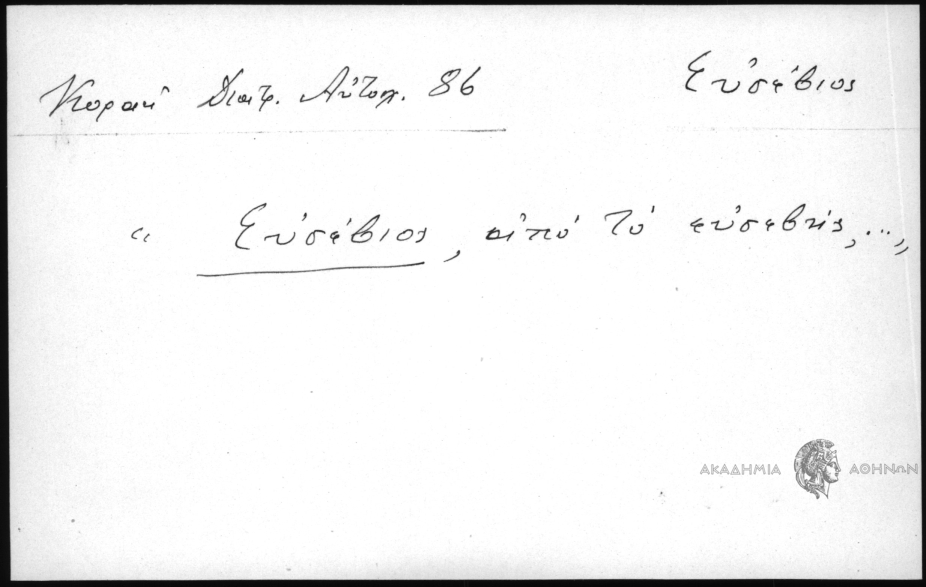 Κοραῆ Διατρ. Αὐτοσχ. 86 Εὐσέβιος
“ Εὐσέβιος, ἀπὸ τὸ εὐσεβής, ...„
ΑΚΑΔΗΜΙΑ ΑΘΗΝΩΝ